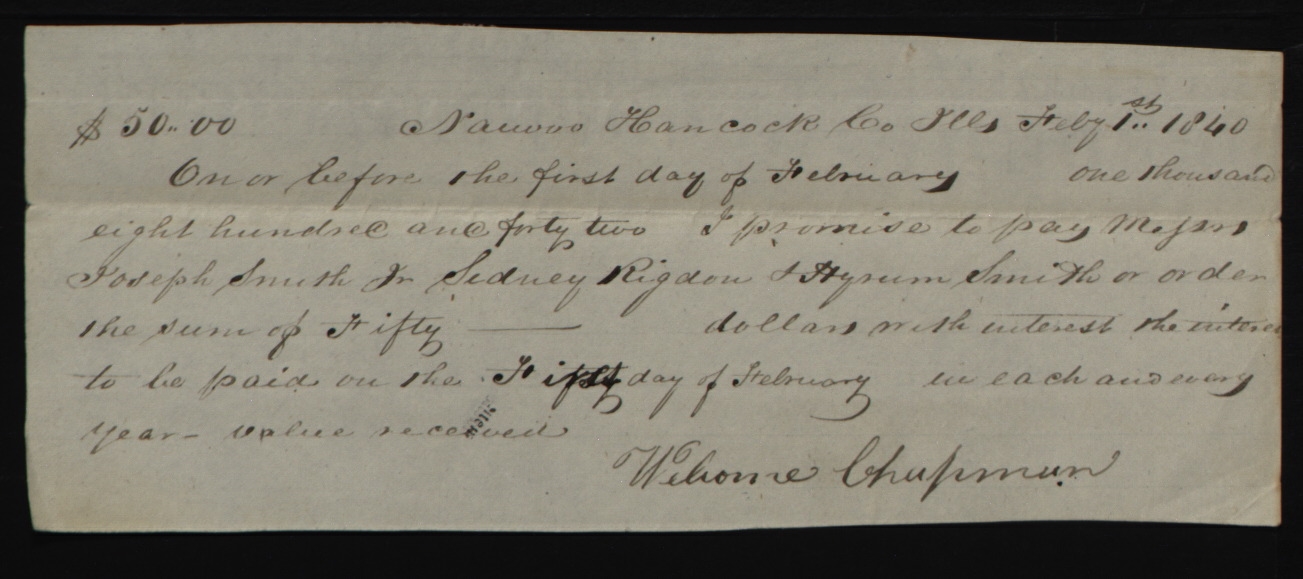 $ 50.. 00 Nauvoo Hancock Co Ills Feby 1st 1840
On or before the first day of February one thousand
eight hundred and forty two I promise to pay Messrs
Joseph Smith Jr Sidney Rigdon & Hyrum Smith or order
the sum of Fifty —— dollars with interest the interest
to be paid on the day of February in each and every
year - value received
Welcome Chapman